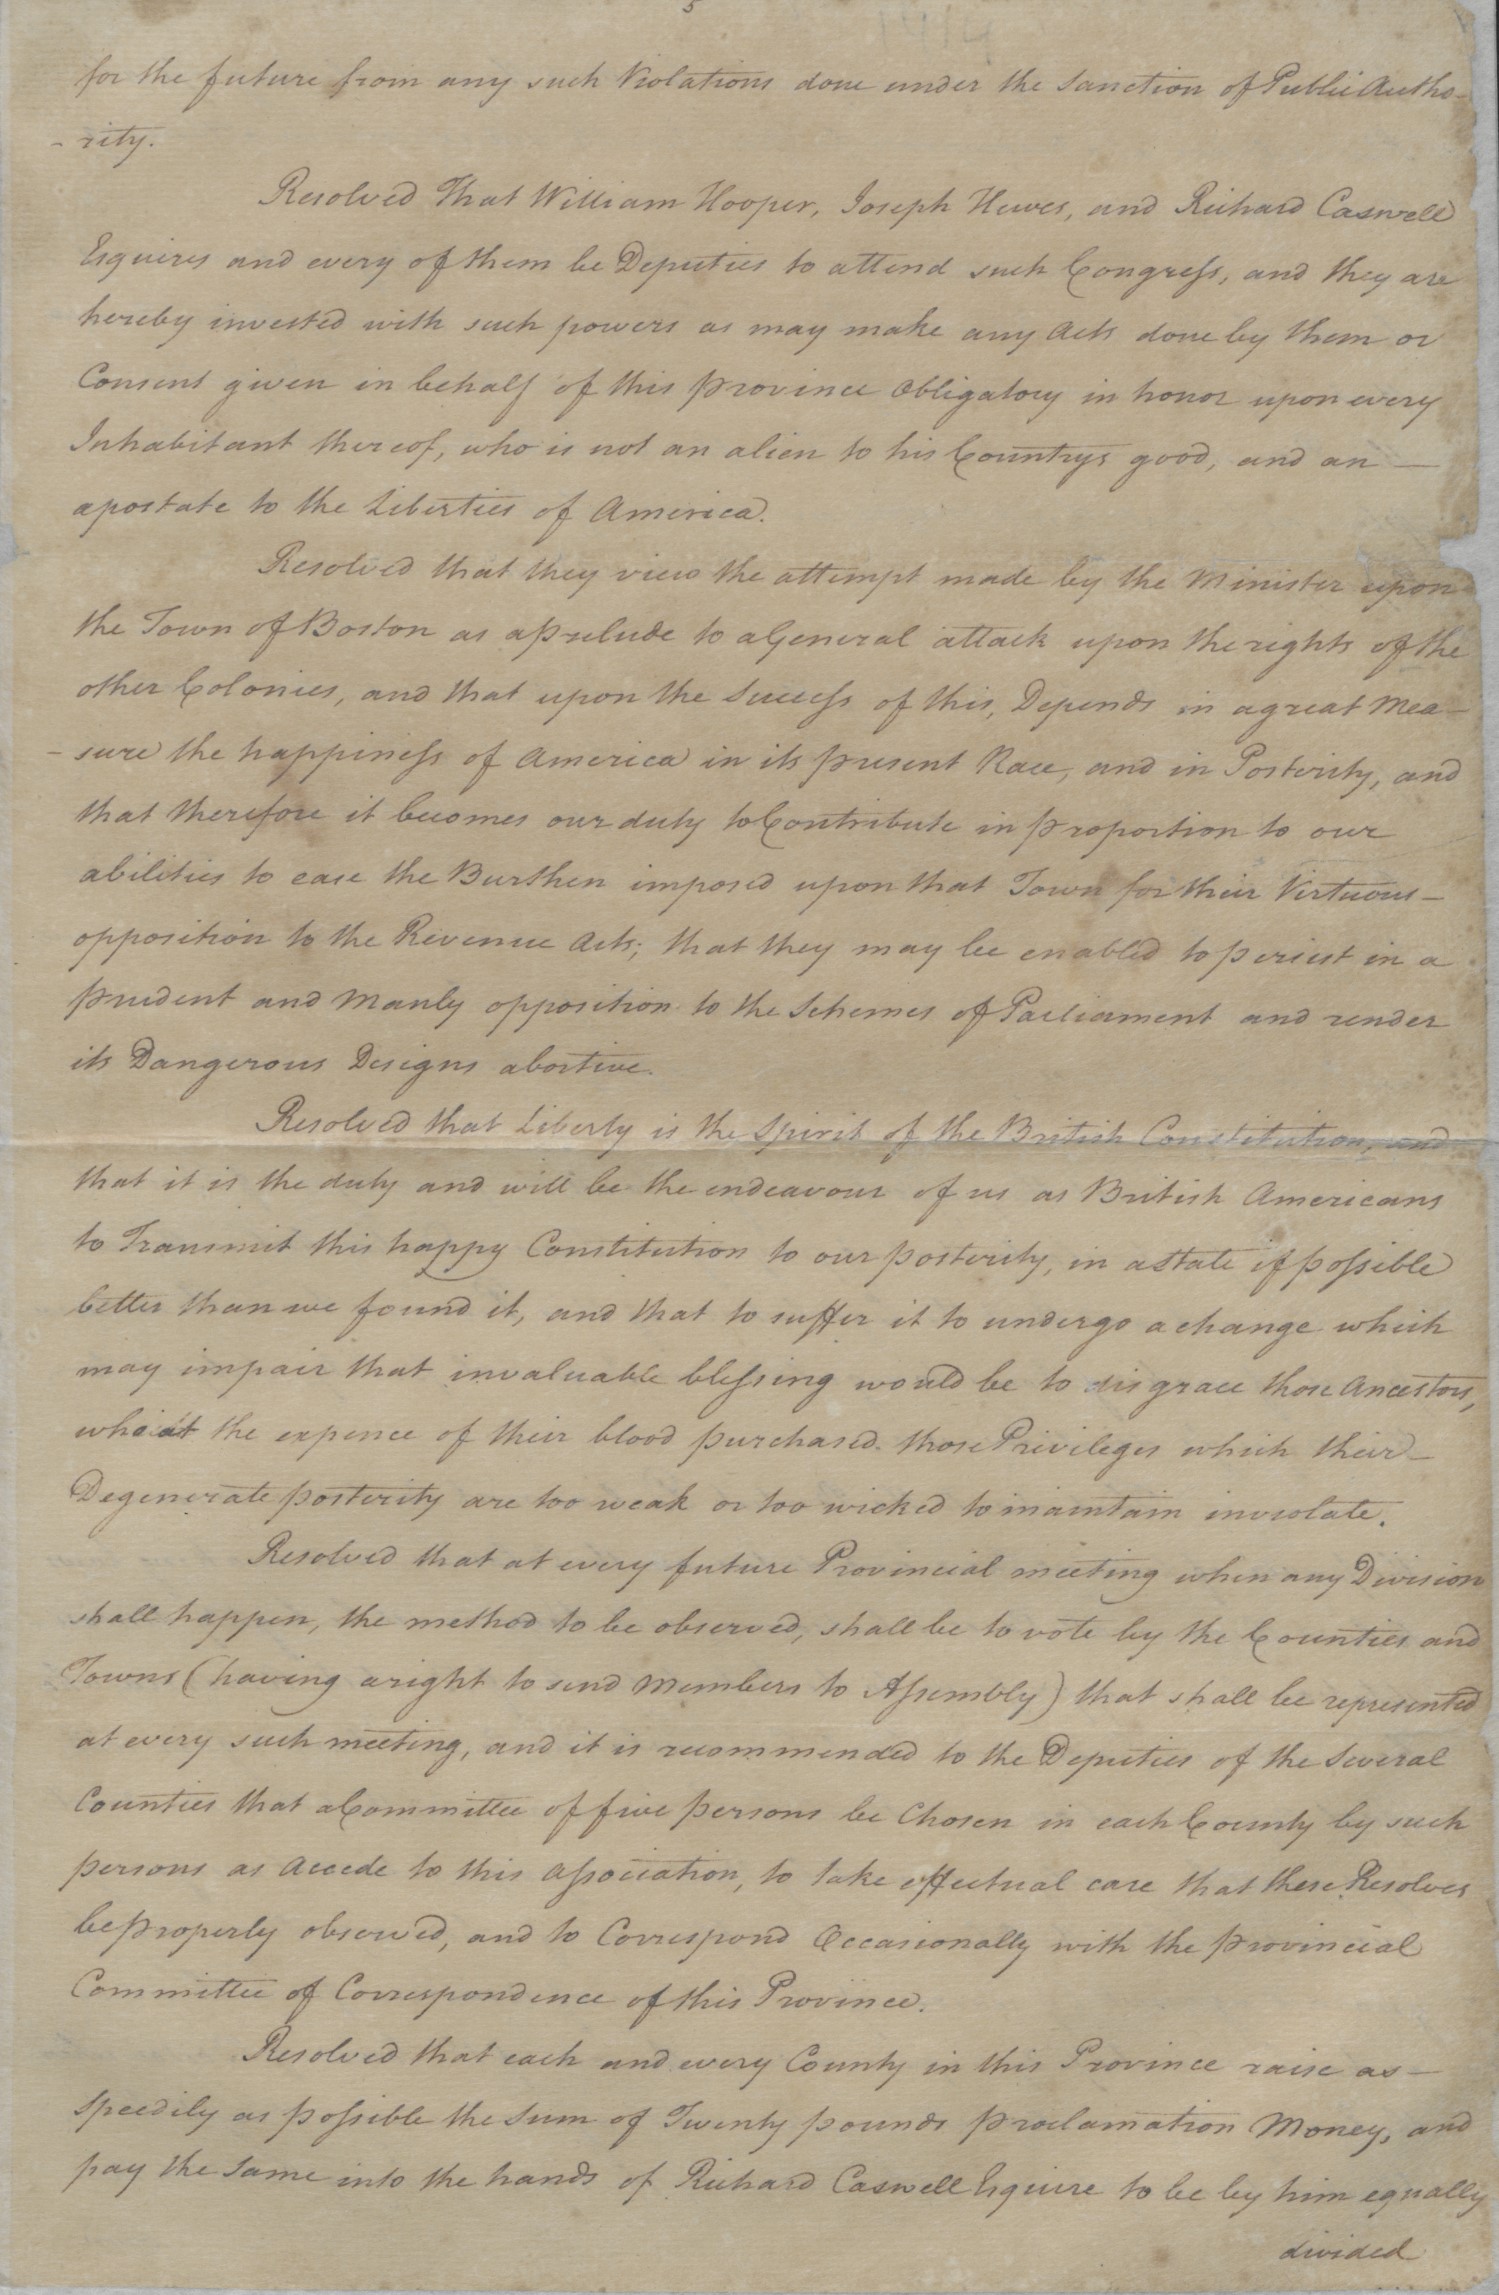 5
for the future from any such Violations done under the Sanction of Public Autho-
-rity.
Resolved That William Hooper, Joseph Hewes, and Richard Caswell
Esquires and every of them be Deputies to attend such Congress, and they are
hereby invested with such powers as may make any Acts done by them or
Consent given in behalf of this province Obligatory in honor upon every
Inhabitant thereof, who is not an alien to his Countrys good, and an —
apostate to the Liberties of America.
Resolved that they view the attempt made by the Minister upon
the Town of Boston as a prelude to a General attack upon the rights of the
other Colonies, and that upon the Success of this, Depends in a great Mea-
-sure the happiness of America in its present Race, and in Posterity, and
that therefore it becomes our duty to Contribute in proportion to our
abilities to ease the Burthen imposed upon that Town for their Virtuous —
opposition to the Revenue Acts; that they may be enabled to persist in a
prudent and Manly opposition to the Schemes of Parliament and render
its Dangerous Designs abortive.
Resolved that Liberty is the Spirit of the British Constitution, and
that it is the duty and will be the endeavour of us as British Americans
to Transmit this happy Constitution to our posterity, in a State if possible
better than we found it, and that to suffer it to undergo a change which
may impair that invaluable blessing would be to disgrace those Ancestors,
who at the expence of their blood purchased those Privileges which their —
Degenerate posterity are too weak or too wicked to maintain inviolate.
Resolved that at every future Provincial meeting when any Division
shall happen, the method to be observed, shall be to vote by the Counties and
Towns (having a right to send Members to Assembly) that shall be represented
at every such meeting, and it is recommended to the Deputies of the Several
Counties that a Committee of five persons be Chosen in each County by such
persons as Accede to this association, to take effectual care that these Resolves
be properly observed, and to Correspond Occasionally with the provincial
Committee of Correspondence of this Province.
Resolved that each and every County in this Province raise as —
Speedily as possible the Sum of Twenty pounds proclamation Money, and
pay the Same into the hands of Richard Caswell Esquire to be by him equally
divided